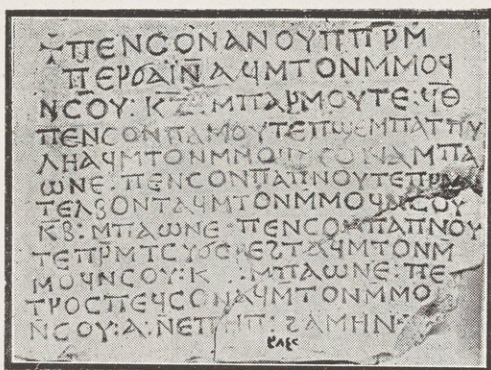 ⳁⲠⲈⲚⲤⲞⲚⲀⲚⲞⲨⲠⲠ̅ⲢⲘ̅
ⲠⲈⲢⲞⲀⲒ̈Ⲛ̅ ⲀϤⲘ̅ⲦⲞⲚⲘ̅ⲘⲞϤ
Ⲛ̅ⲤⲞⲨ: Ⲕ̅Ⲍ̅: ⲘⲠⲀⲢⲘⲞⲨⲦⲈ: Ϥ̅Ⲑ̅
ⲠⲈⲚⲤⲞⲚⲠⲀⲘⲞⲨⲦⲈⲠϢⲈⲘⲠⲀⲦⲠⲨ
ⲖⲎⲀϤⲘ̅ⲦⲞⲚⲘ̅ⲘⲞϤⲚ̅ⲤⲞⲨⲘ̅ⲠⲀ
ⲰⲚⲈ: ⲠⲈⲚⲤⲞⲚⲠⲀⲠⲚⲞⲨⲦⲈ
ⲦⲈⲖⲂⲞⲚⲦⲀϤⲘ̅ⲦⲞⲚⲘ̅ⲘⲞϤⲚ̅ⲤⲞⲨ
Ⲕ̅Ⲃ̅: Ⲙ̅ⲠⲀⲰⲚⲈ: ⲠⲈⲚⲤⲞⲚⲠⲀⲠⲚⲞⲨ
ⲦⲈⲠⲢ̅ⲘⲦ ⲀϤⲘ̅ⲦⲞⲚⲘ̅
ⲘⲞϤⲚⲤⲞⲨ: Ⲕ : Ⲙ̅ⲠⲀⲰⲚⲈ: ⲠⲈ
ⲦⲢⲞⲤⲠⲈϤⲤⲞⲚⲀϤⲘ̅ⲦⲞⲚⲘⲘⲞ
Ⲛ̅ⲤⲞⲨ: Ⲁ: Ⲛ̅ⲈⲠⲎⲠ: ϨⲀⲘⲎⲚ